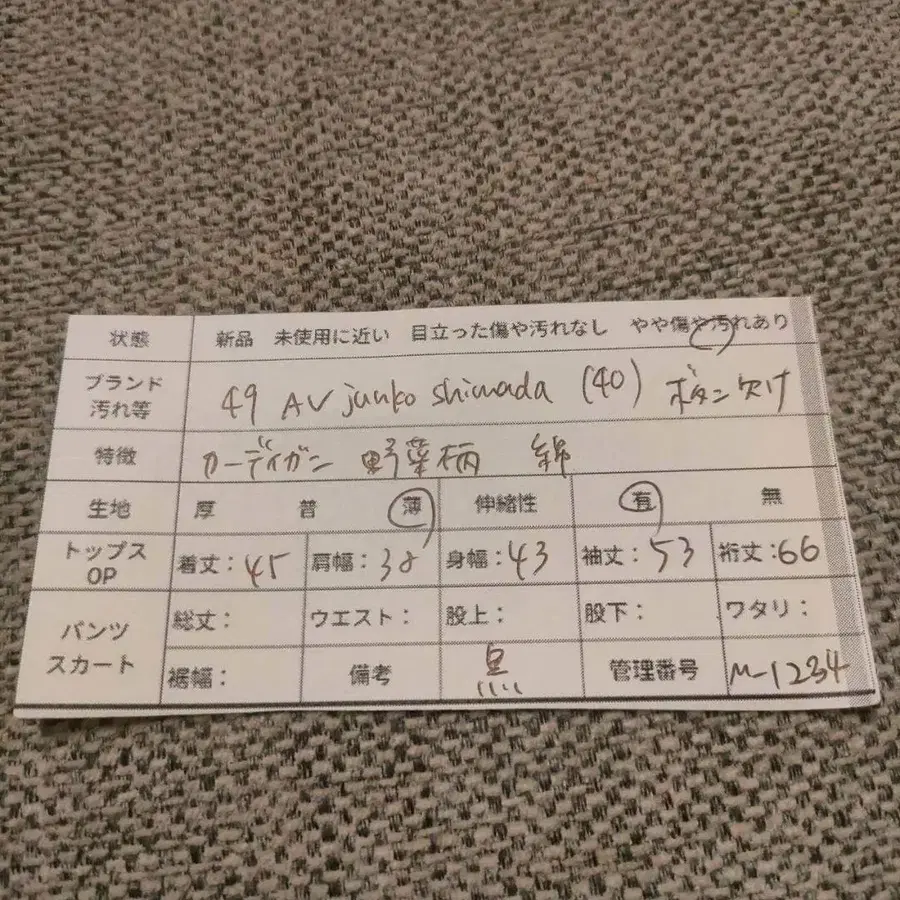 状態 新品 未使用に近い 目立った傷や汚れなし やや傷や汚れあり
ブランド 汚れ等 49 AV junko shimada (40) ボタン欠け
特徴 カーディガン 野菜柄 綿
生地 厚 普 薄 伸縮性 有 無
トップス OP 着丈：45 肩幅：38 身幅：43 袖丈：53 裄丈：66
パンツ スカート 総丈： ウエスト： 股上： 股下： ワタリ：
裾幅： 備考 黒 管理番号 M-1234